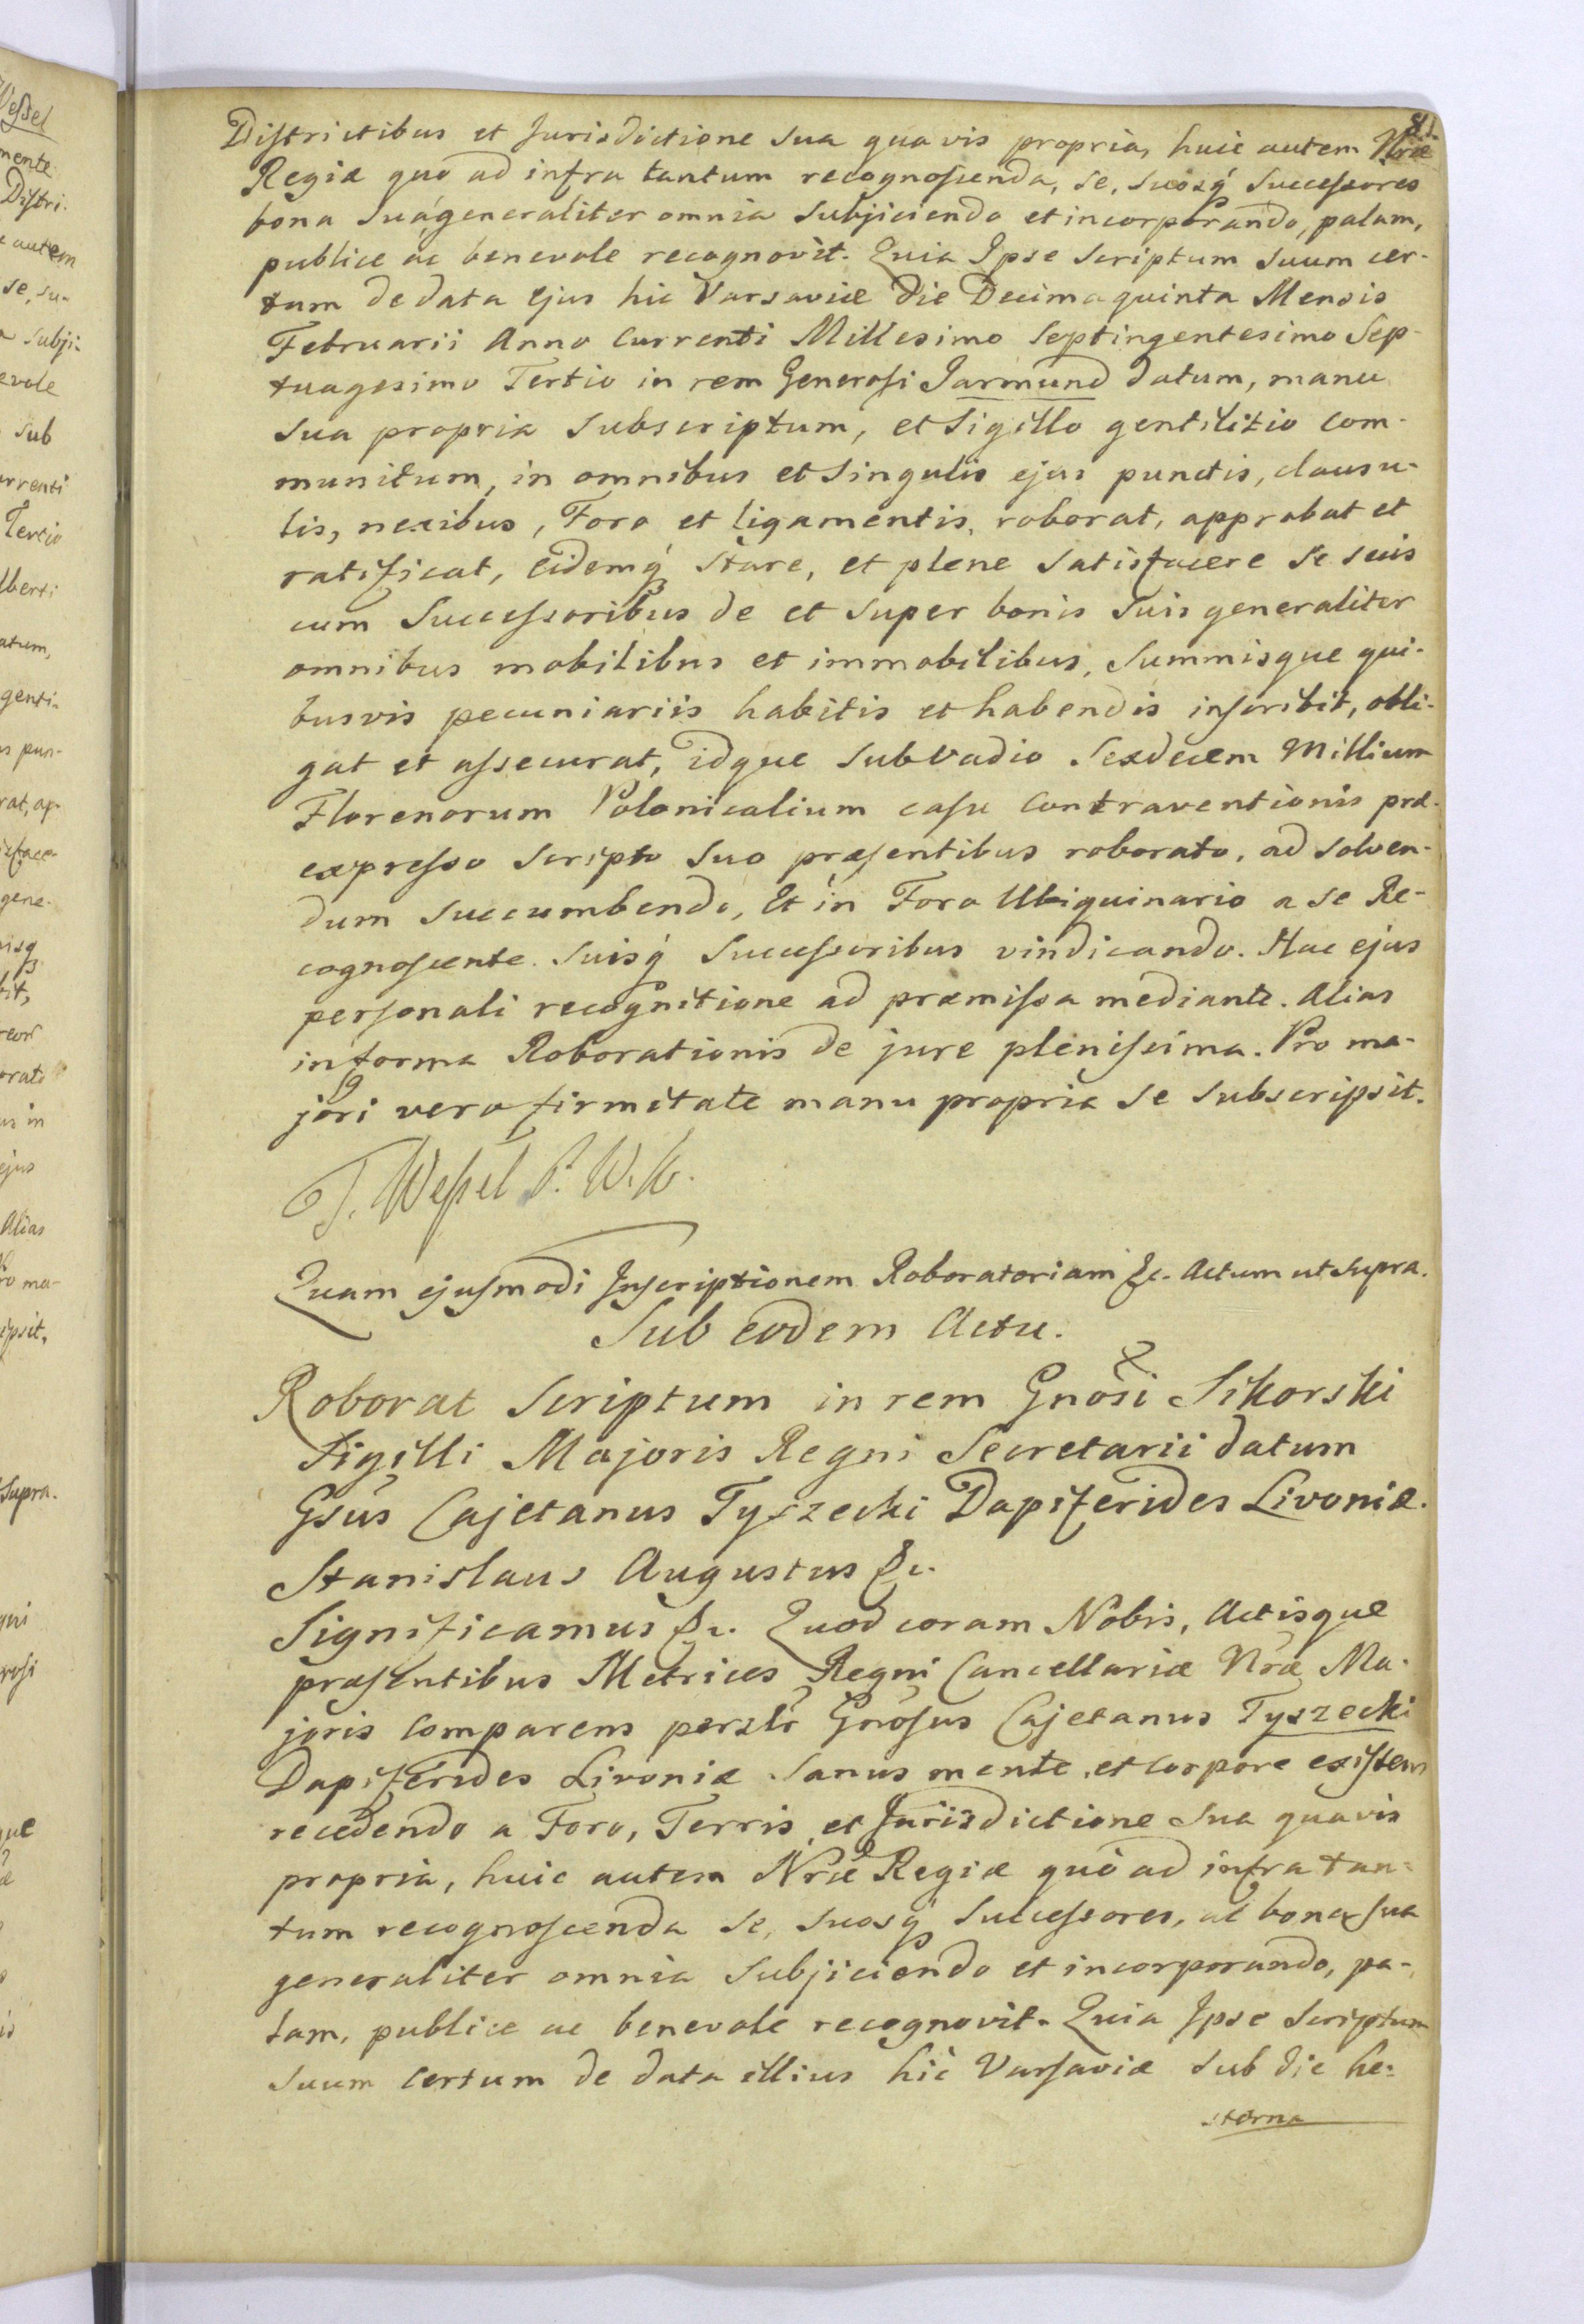 Districtibus et Jurisdictione sua quavis propria, huic autem Nræ
Regiæ quo ad infra tantum recognoscenda, se, suosq́ successores
bona sua generaliter omnia subjiciendo et incorporando, palam,
publice ac benevole recognovit. Quia Ipse scriptum suum cer-
tum de data ejus hic Varsaviæ die Decima quinta Mensis
Februarii Anno currenti Millesimo Septingentesimo Sep-
tuagesimo Tertio in rem Generosi Jarmund datum, manu
sua propria subscriptum, et sigillo gentilitio com-
munitum, in omnibus et singulis ejus punctis, clausu-
lis, nexibus, Foro et ligamentis, roborat, approbat et
ratificat, eidemq́ stare, et plene satisfacere se suis
cum successoribus de et super bonis suis generaliter
omnibus mobilibus et immobilibus, summisque qui-
busvis pecuniariis habitis et habendis inscribit, obli-
gat et assecurat, idque sub vadio Sexdecem Millium
Florenorum Polonicalium casu contraventionis præ-
expresso scripto suo præsentibus roborato, ad solven-
dum succumbendo, Et in Foro Ubiquinario a se Re-
cognoscente suisq́ successoribus vindicando. Hac ejus
personali recognitione ad præmissa mediante. Alias
in forma Roborationis de jure plenissima. Pro ma-
jori vero firmitate manu propria se subscripsit.
T. Wessel P. W. K.
Quam ejusmodi Inscriptionem Roboratoriam &c. Actum ut supra.
Sub eodem Actu.
Roborat scriptum in rem Gnosi Sikorski
Sigilli Majoris Regni Secretarii datum
Gsus Cajetanus Tyszecki Dapiferides Livoniæ.
Stanislaus Augustus &c.
Significamus &c. Quod coram Nobis, Actisque
præsentibus Metrices Regni Cancellariæ Nræ Ma-
joris comparens perslr Gnosus Cajetanus Tyszecki
Dapiferides Livoniæ sanus mente, et corpore existens
recedendo a Foro, Terris, et Jurisdictione sua quavis
propria, huic autem Nræ Regiæ quò ad infra tan-
tum recognoscenda se, suosq́ successores, ac bona sua
generaliter omnia subjiciendo et incorporando, pa-
lam, publice ac benevole recognovit. Quia Ipse scriptum
suum certum de data illius hic Varsaviæ sub die he-
sterna